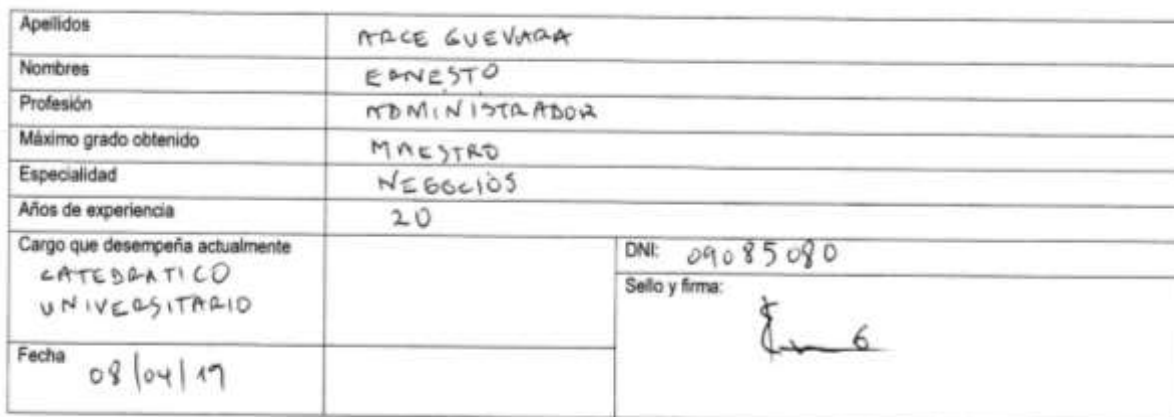 Apellidos ARCE GUEVARA
Nombres ERNESTO
Profesión ADMINISTRADOR
Máximo grado obtenido MAESTRO
Especialidad NEGOCIOS
Años de experiencia 20
Cargo que desempeña actualmente
CATEDRATICO
UNIVERSITARIO
DNI: 09085080
Sello y firma:
Fecha 08/04/19